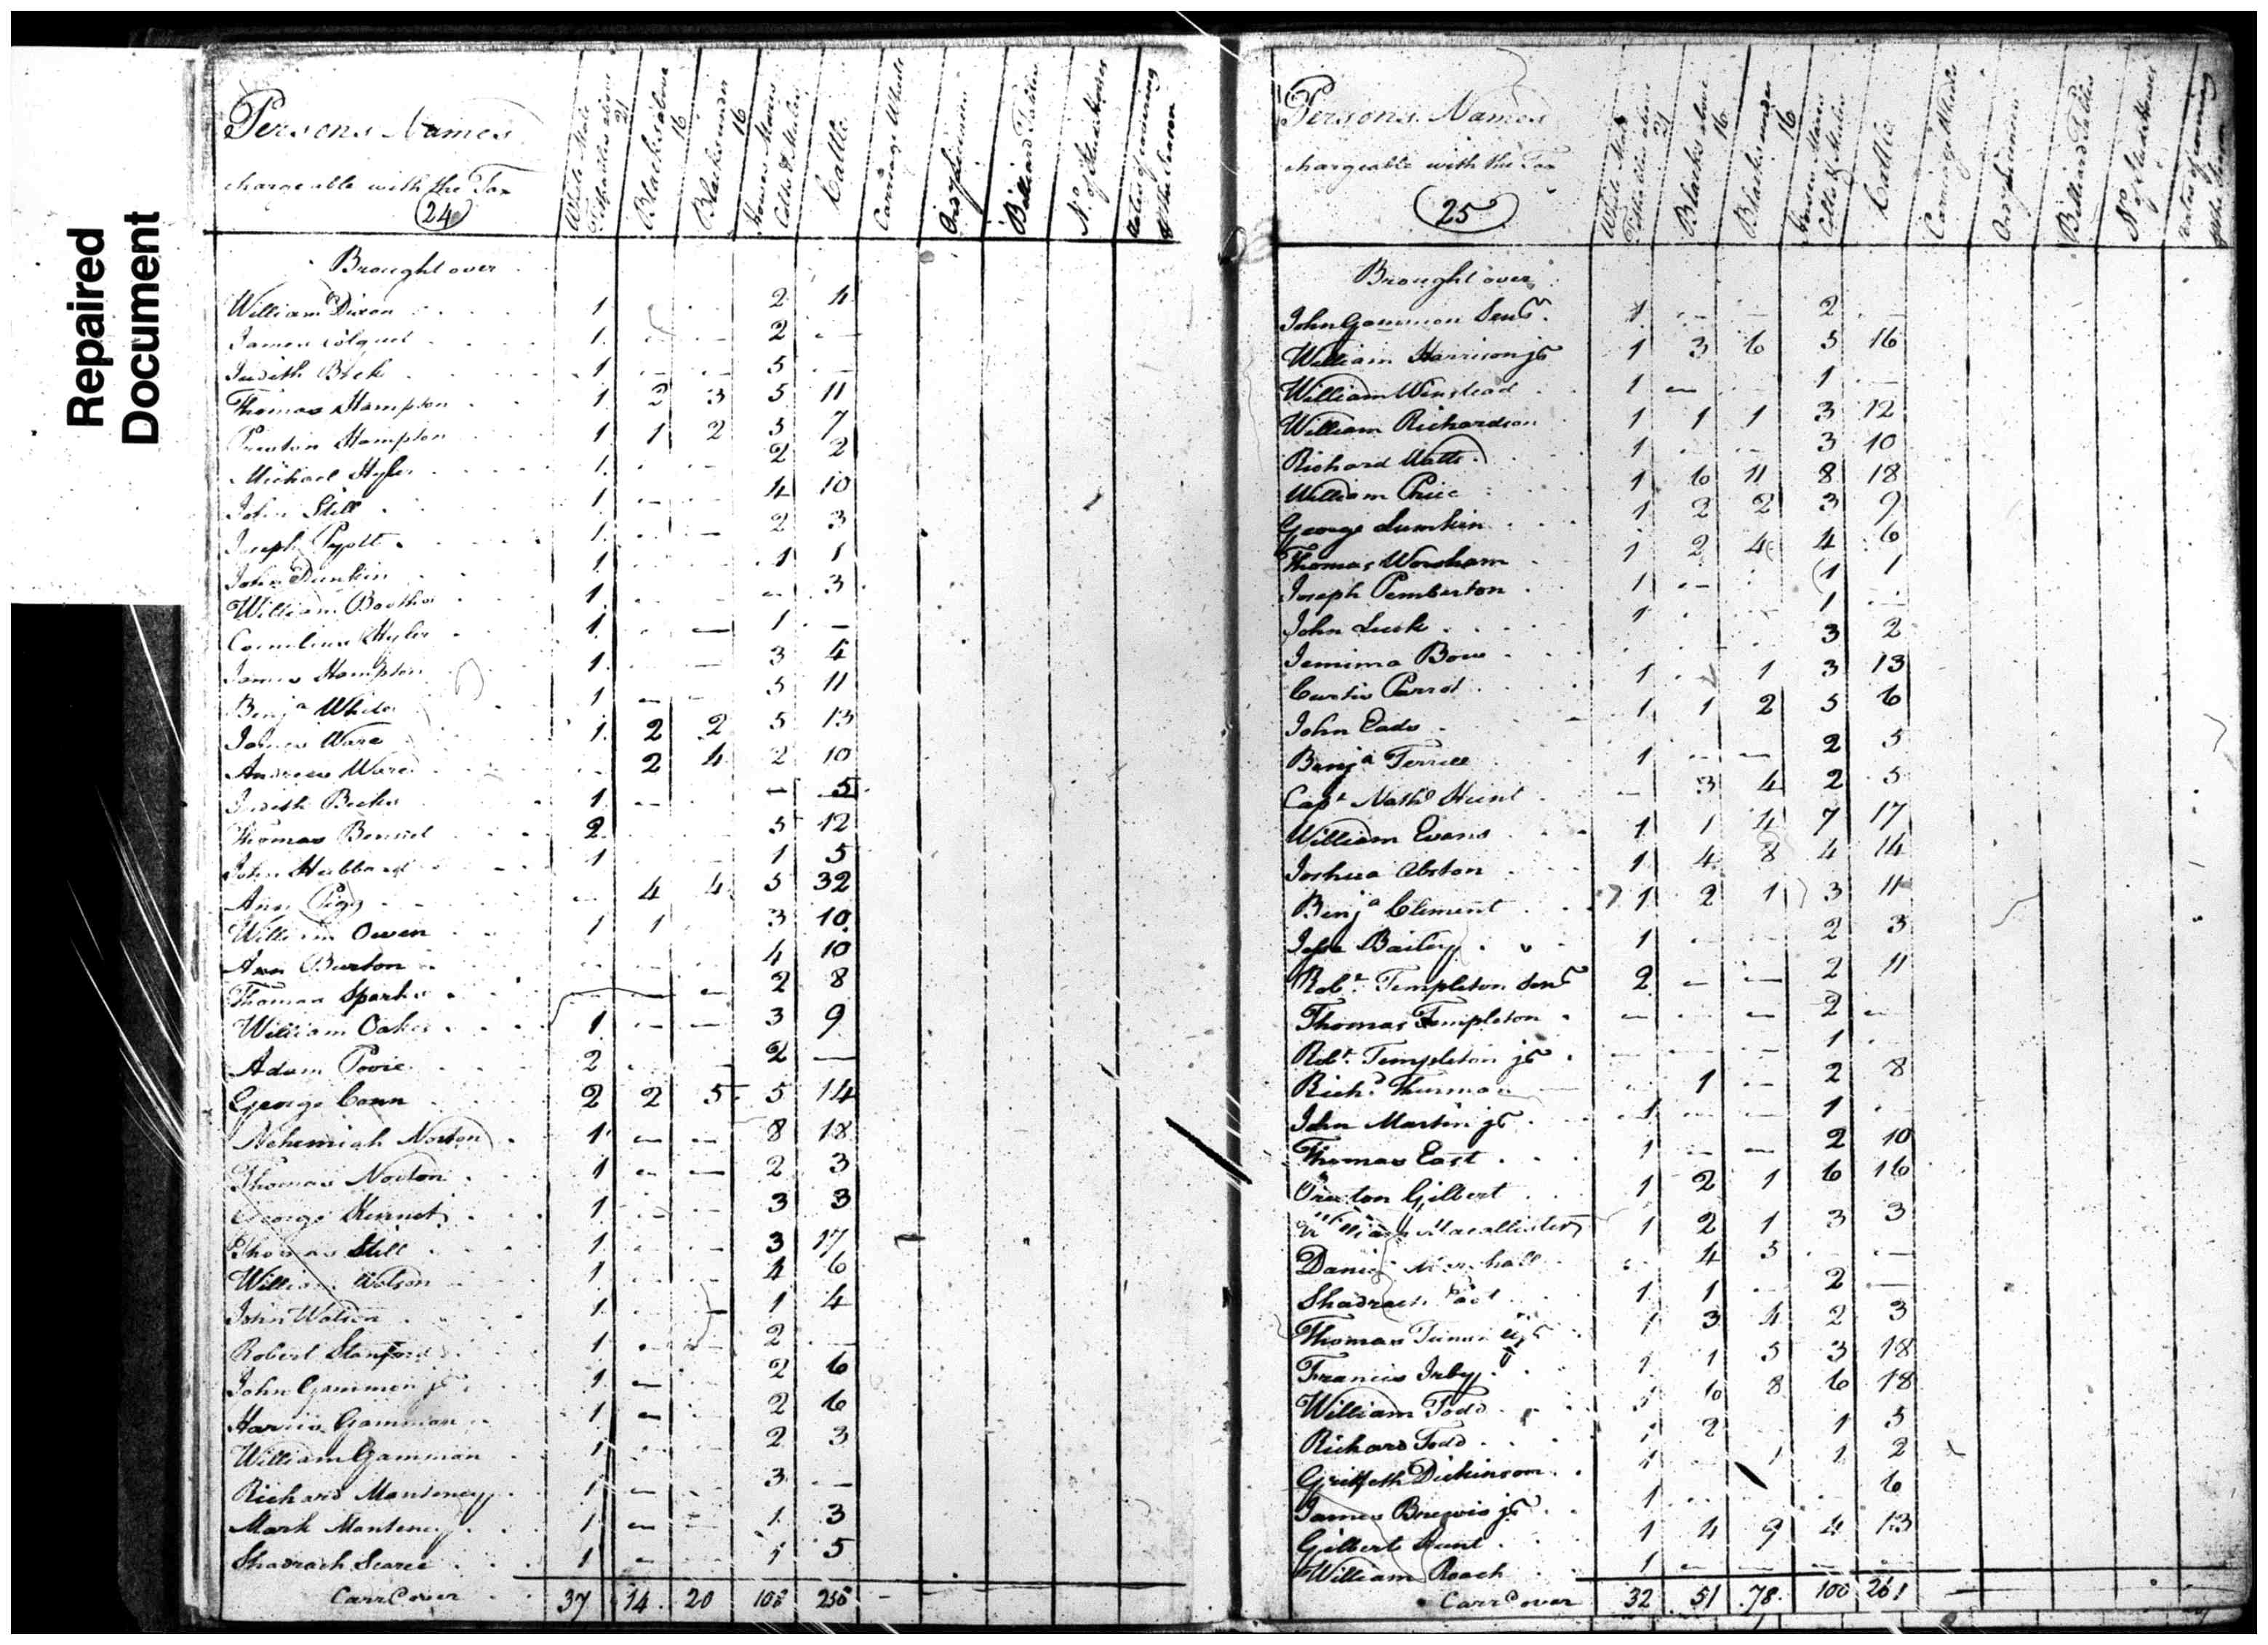 Repaired
Document
Persons Names
chargeable with the Tax
24
White Male Tithables above 21
Blacks above 16
Blacks under 16
Horses Mares Colts & Mules
Cattle
Carriage Wheels
Ordy Licences
Billiard Tables
No. of Stud Horses
Rates of covering by the Season
Brought over
William Dixon 1 2 4
James 1 2 —
Judith 1 5 —
Thomas Hampton 1 2 3 5 11
Preston Hampton 1 1 2 5 7
Michael Hyler 1 2 2
John Still 1 4 10
Joseph Pyott 1 2 3
John Dunkin 1 1 1
William 1 — 3
Cornelius Hyler 1 — 1 —
James Hampton 1 — 3 4
Benja White 1 5 11
James Ware 1 2 2 5 13
Andrew Ware 2 4 2 10
Judith Becks 1 — 5
Thomas Bennet 2 5 12
John Hubbard 1 1 5
Ann Pigg 4 4 5 32
William Owen 1 1 3 10
Ann Burton 4 10
Thomas Sparks 2 8
William Oakes 1 3 9
Adam 2 2 —
George Cann 2 2 5 5 14
Nehemiah Norton 1 8 18
Thomas Norton 1 2 3
George 1 3 3
Thomas Still 1 3 17
William Watson 1 4 6
John Watson 1 1 4
Robert Stanford 1 2 —
John Gammon jr 1 2 6
Harris Gammon 1 2 6
William Gammon 1 2 3
Richard Manteney 1 3 —
Mark Manteney 1 1 3
Shadrach Scarce 1 1 5
Carrd over 37 14 20 108 250
Persons Names
chargeable with the Tax
25
White Male Tithables above 21
Blacks above 16
Blacks under 16
Horses Mares Colts & Mules
Cattle
Carriage Wheels
Ordy Licences
Billiard Tables
No. of Stud Horses
Rates of covering by the Season
Brought over
John Gammon Senr. 1 2
William Harrison jr 1 3 6 5 16
William Winstead 1 1
William Richardson 1 1 1 3 12
Richard Watts 1 3 10
William Price 1 6 11 8 18
George Lumkin 1 2 2 3 9
Thomas Worsham 1 2 4 4 6
Joseph Pemberton 1 1 1
John Lusk 1 1
Jemima Bow 3 2
Curtis Parrot 1 1 3 13
John Eads 1 1 2 5 6
Benja Terrell 1 2 5
Capt Nathl Hunt 3 4 2 5
William Evans 1 1 4 7 17
Joshua Abston 1 4 8 4 14
Benja Clement 1 2 1 3 11
Jesse Bailey 1 2 3
Robt. Templeton Senr 2 2 11
Thomas Templeton 2
Robt. Templeton jr 1
Richd Thurman 1 2 8
John Martin jr 1 1
Thomas East 1 2 10
Preston Gilbert 1 2 1 6 16
William Macallister 1 2 1 3 3
Daniel Marshall 4 5
Shadrach 1 1 2 —
Thomas 1 3 4 2 3
Francis Irby 1 1 5 3 18
William Todd 1 6 8 6 18
Richard Todd 1 2 1 5
Griffeth Dickinson 1 1 1 2
James Brewis jr 1 6
Gilbert Hunt 1 4 9 4 13
William Roach 1
Carrd over 32 51 78 100 261